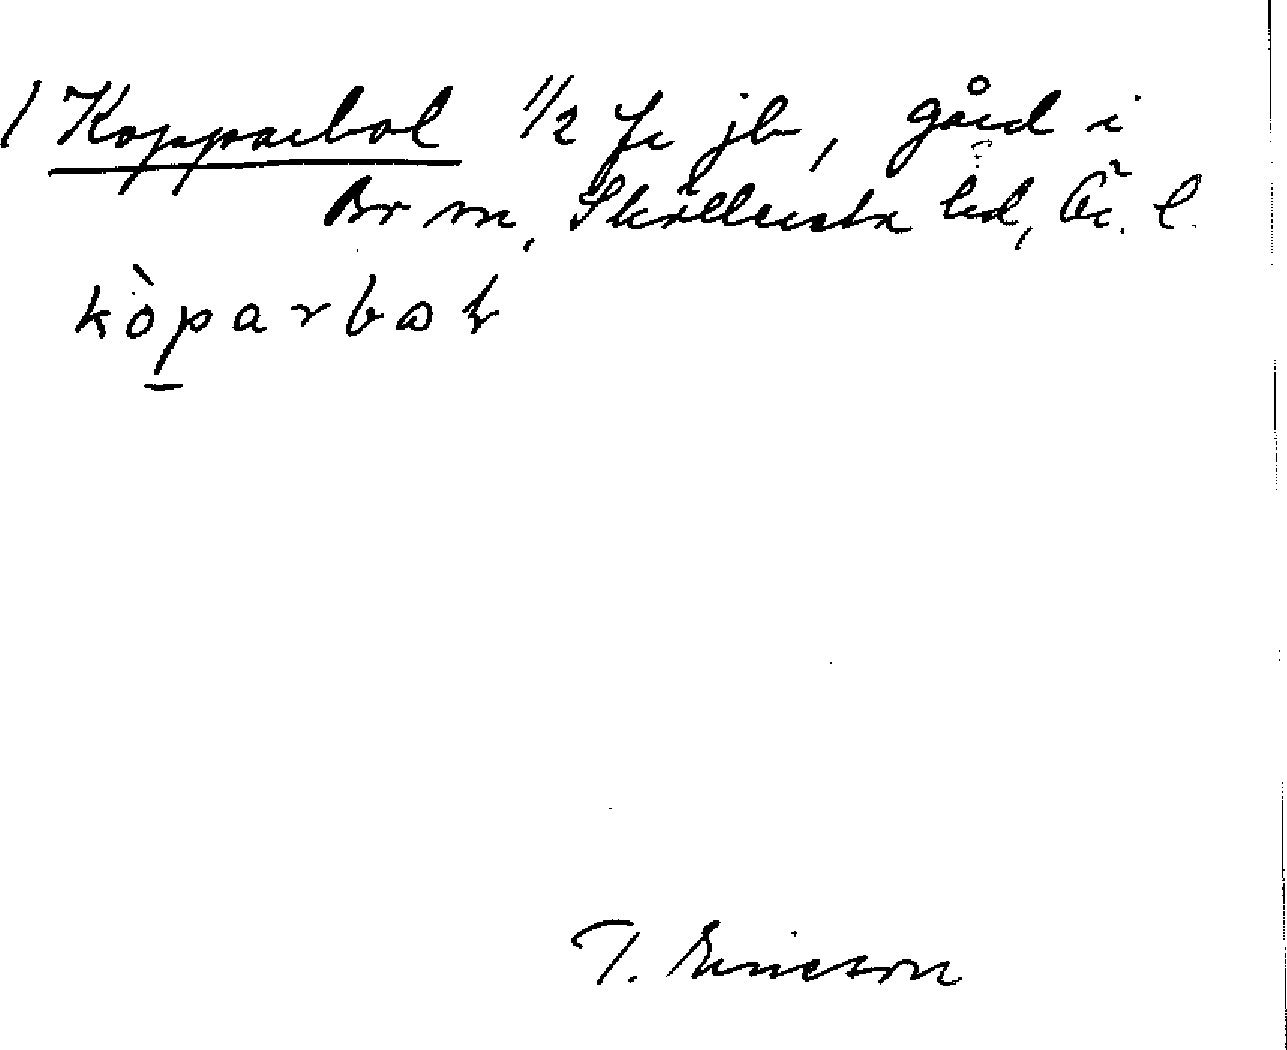 1 Kopparbol 1/2 fr jb, gård i
Br m, Sköllersta hd, Ör. l.
kòparbol
T. Ericsson